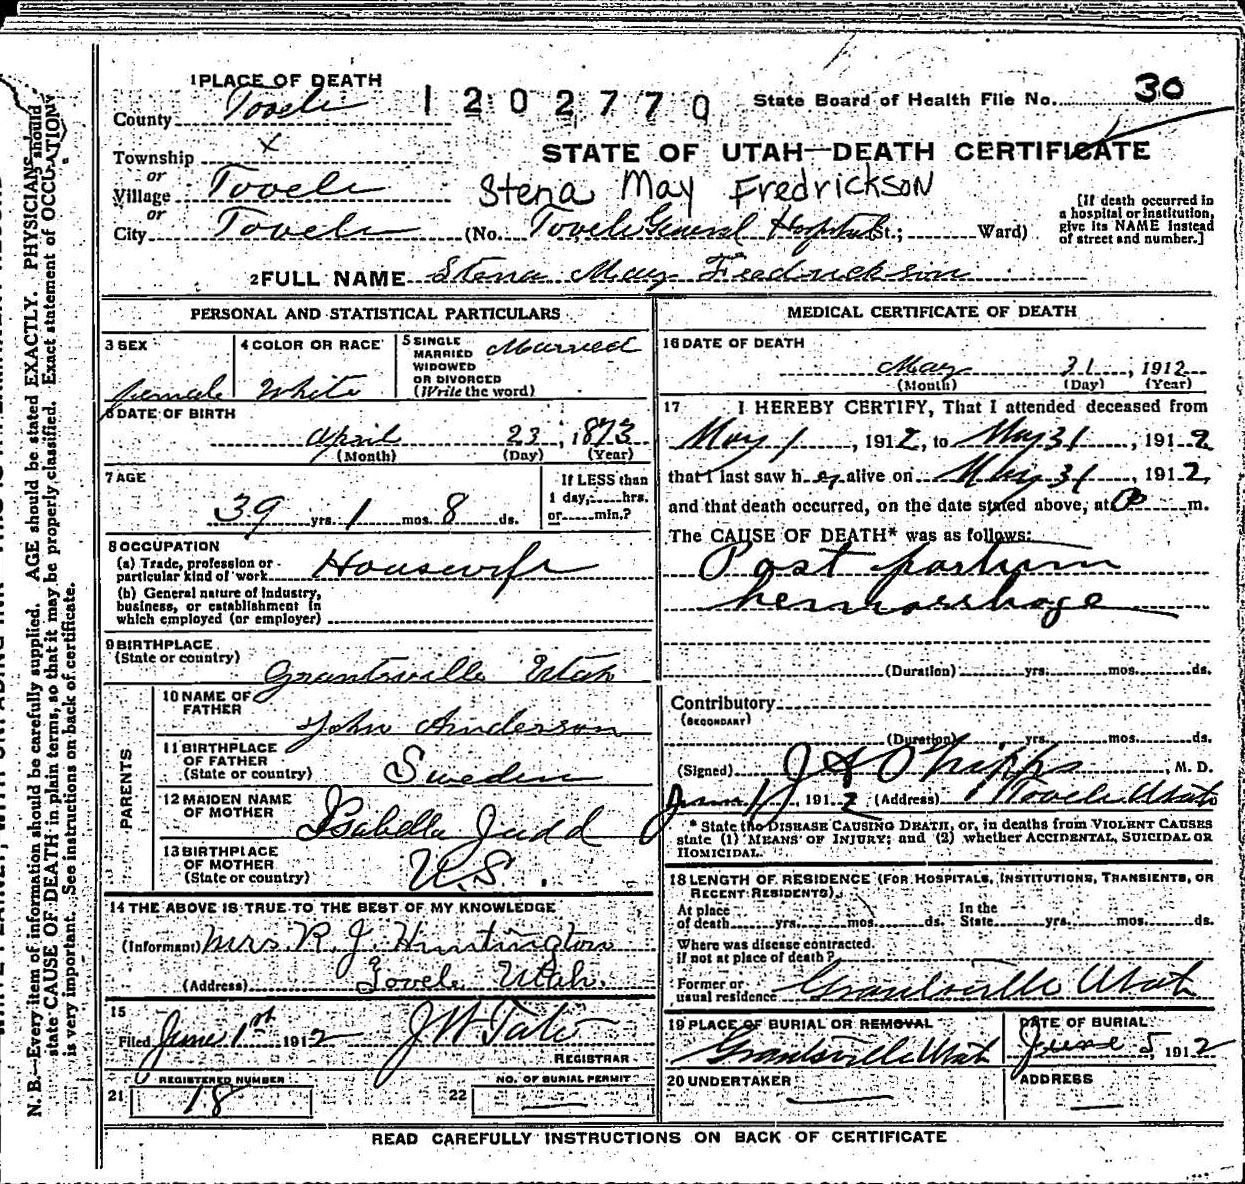 1 PLACE OF DEATH
County Tooele
1202770
State Board of Health File No. 30
Township X
or
Village Tooele
or
City Tooele
STATE OF UTAH—DEATH CERTIFICATE
Stena May Fredrickson
(No. Tooele General Hospital St.; Ward)
[If death occurred in
a hospital or institution,
give its NAME instead
of street and number.]
2 FULL NAME Stena May Fredrickson
PERSONAL AND STATISTICAL PARTICULARS
3 SEX
female
4 COLOR OR RACE
White
5 SINGLE
MARRIED
WIDOWED
OR DIVORCED
(Write the word)
Married
6 DATE OF BIRTH
April 23, 1873
(Month) (Day) (Year)
7 AGE
39 yrs. 1 mos. 8 ds.
If LESS than
1 day, hrs.
or min.?
8 OCCUPATION
(a) Trade, profession or
particular kind of work Housewife
(b) General nature of industry,
business, or establishment in
which employed (or employer)
9 BIRTHPLACE
(State or country)
Grantsville Utah
PARENTS
10 NAME OF
FATHER
John Anderson
11 BIRTHPLACE
OF FATHER
(State or country)
Sweden
12 MAIDEN NAME
OF MOTHER
Isabella Judd
13 BIRTHPLACE
OF MOTHER
(State or country)
U.S.
14 THE ABOVE IS TRUE TO THE BEST OF MY KNOWLEDGE
(Informant) Mrs R. J. Huntington
(Address) Tooele Utah.
15
Filed June 1st 1912 J W Tate
REGISTRAR
REGISTERED NUMBER
21 18
NO. OF BURIAL PERMIT
22
MEDICAL CERTIFICATE OF DEATH
16 DATE OF DEATH
May 31, 1912
(Month) (Day) (Year)
17 I HEREBY CERTIFY, That I attended deceased from
May 1, 1912, to May 31, 1912
that I last saw her alive on May 31, 1912,
and that death occurred, on the date stated above, at P m.
The CAUSE OF DEATH* was as follows:
Post partum
hemorrhage
(Duration) yrs. mos. ds.
Contributory
(SECONDARY)
(Duration) yrs. mos. ds.
(Signed) J A Phipps, M. D.
June 1, 1912 (Address) Tooele Utah
* State the DISEASE CAUSING DEATH, or, in deaths from VIOLENT CAUSES
state (1) MEANS OF INJURY; and (2) whether ACCIDENTAL, SUICIDAL OR
HOMICIDAL.
18 LENGTH OF RESIDENCE (FOR HOSPITALS, INSTITUTIONS, TRANSIENTS, OR
RECENT RESIDENTS).
At place
of death yrs. mos. ds.
In the
State yrs. mos. ds.
Where was disease contracted
if not at place of death?
Former or
usual residence Grantsville Utah
19 PLACE OF BURIAL OR REMOVAL
Grantsville Utah
DATE OF BURIAL
June 5, 1912
20 UNDERTAKER
ADDRESS
READ CAREFULLY INSTRUCTIONS ON BACK OF CERTIFICATE
N. B.—Every item of information should be carefully supplied. AGE should be stated EXACTLY. PHYSICIANS should
state CAUSE OF DEATH in plain terms, so that it may be properly classified. Exact statement of OCCUPATION
is very important. See instructions on back of certificate.